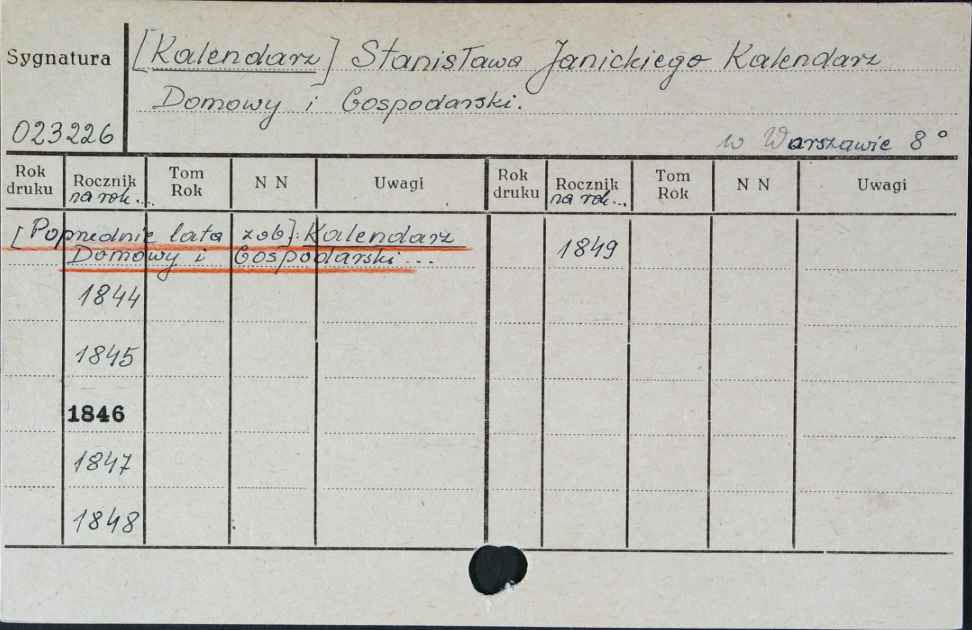 Sygnatura
[Kalendarz] Stanisława Janickiego Kalendarz
Domowy i Gospodarski.
023226
w Warszawie 8°
Rok druku Rocznik na rok... Tom Rok N N Uwagi Rok druku Rocznik na rok... Tom Rok N N Uwagi
[Poprzednie lata zob]: Kalendarz
Domowy i Gospodarski...
1849
1844
1845
1846
1847
1848